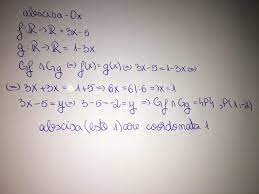 abscisa-Ox
f:R→R=3x-5
g:R→R=1-3x
Gf∩Gg ⇔ f(x)=g(x) ⇔ 3x-5=1-3x ⇔
⇔ 3x+3x=1+5 ⇔ 6x=6|:6 ⇒ x=1
3x-5=y ⇔ 3-5=-2=y ⇒ Gf∩Gg={P}, P(1,-2)
abscisa (este 1) are coordonata 1